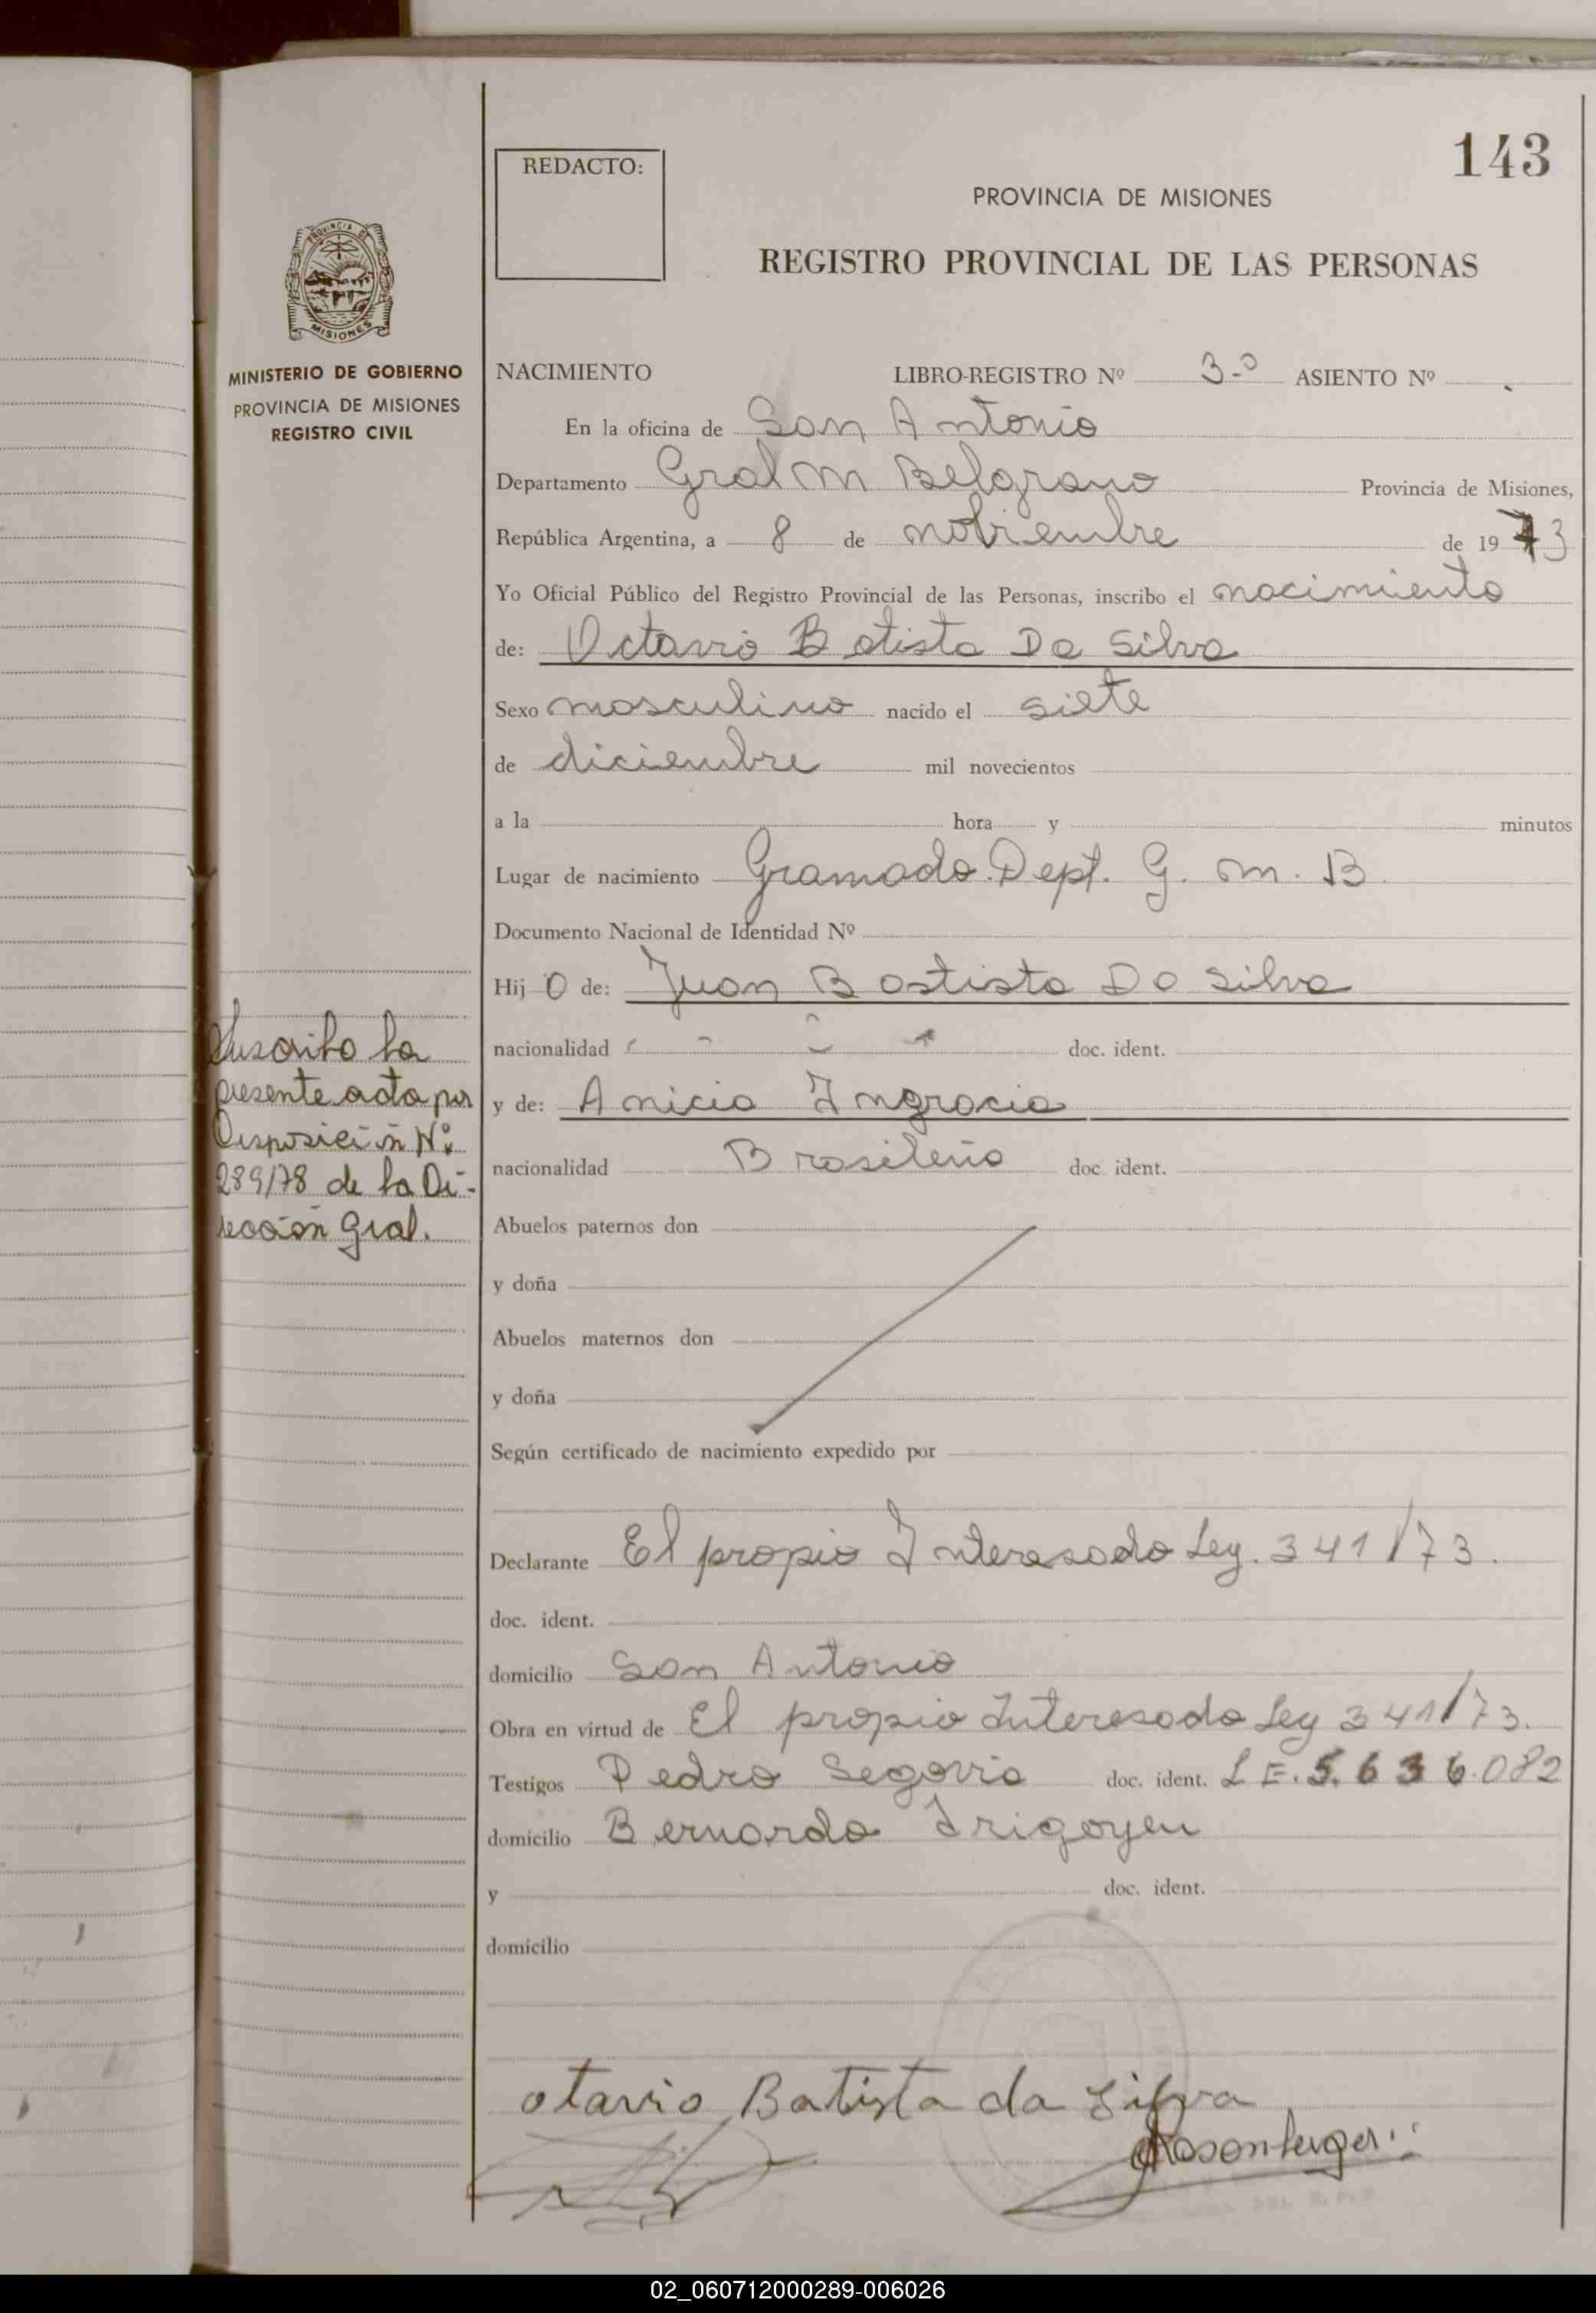 143
REDACTO:
PROVINCIA DE MISIONES
REGISTRO PROVINCIAL DE LAS PERSONAS
PROVINCIA DE
MISIONES
MINISTERIO DE GOBIERNO
PROVINCIA DE MISIONES
REGISTRO CIVIL
NACIMIENTO LIBRO-REGISTRO Nº 3-º ASIENTO Nº
En la oficina de San Antonio
Departamento Gral M Belgrano Provincia de Misiones,
República Argentina, a 8 de nobiembre de 1973
Yo Oficial Público del Registro Provincial de las Personas, inscribo el nacimiento
de: Octavio Batista Da Silva
Sexo masculino nacido el siete
de diciembre mil novecientos
a la hora y minutos
Lugar de nacimiento Gramado. Dept. G. M. B.
Documento Nacional de Identidad Nº
Hij o de: Juan Bastista Da Silva
nacionalidad doc. ident.
y de: Anicia Ingracia
nacionalidad Brasileña doc. ident.
Abuelos paternos don
y doña
Abuelos maternos don
y doña
Según certificado de nacimiento expedido por
Declarante El propio Interesado Ley. 341/73.
doc. ident.
domicilio San Antonio
Obra en virtud de El propio Interesado Ley 341/73.
Testigos Pedro Segovia doc. ident. L E. 5.636.082
domicilio Bernardo Irigoyen
y doc. ident.
domicilio
Suscribo la
presente acta por
Disposición Nº
289/78 de la Di-
rección Gral.
otavio Batista da Silva
Rosenberger
02_060712000289-006026